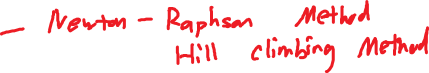 - Newton - Raphson Method
Hill climbing Method